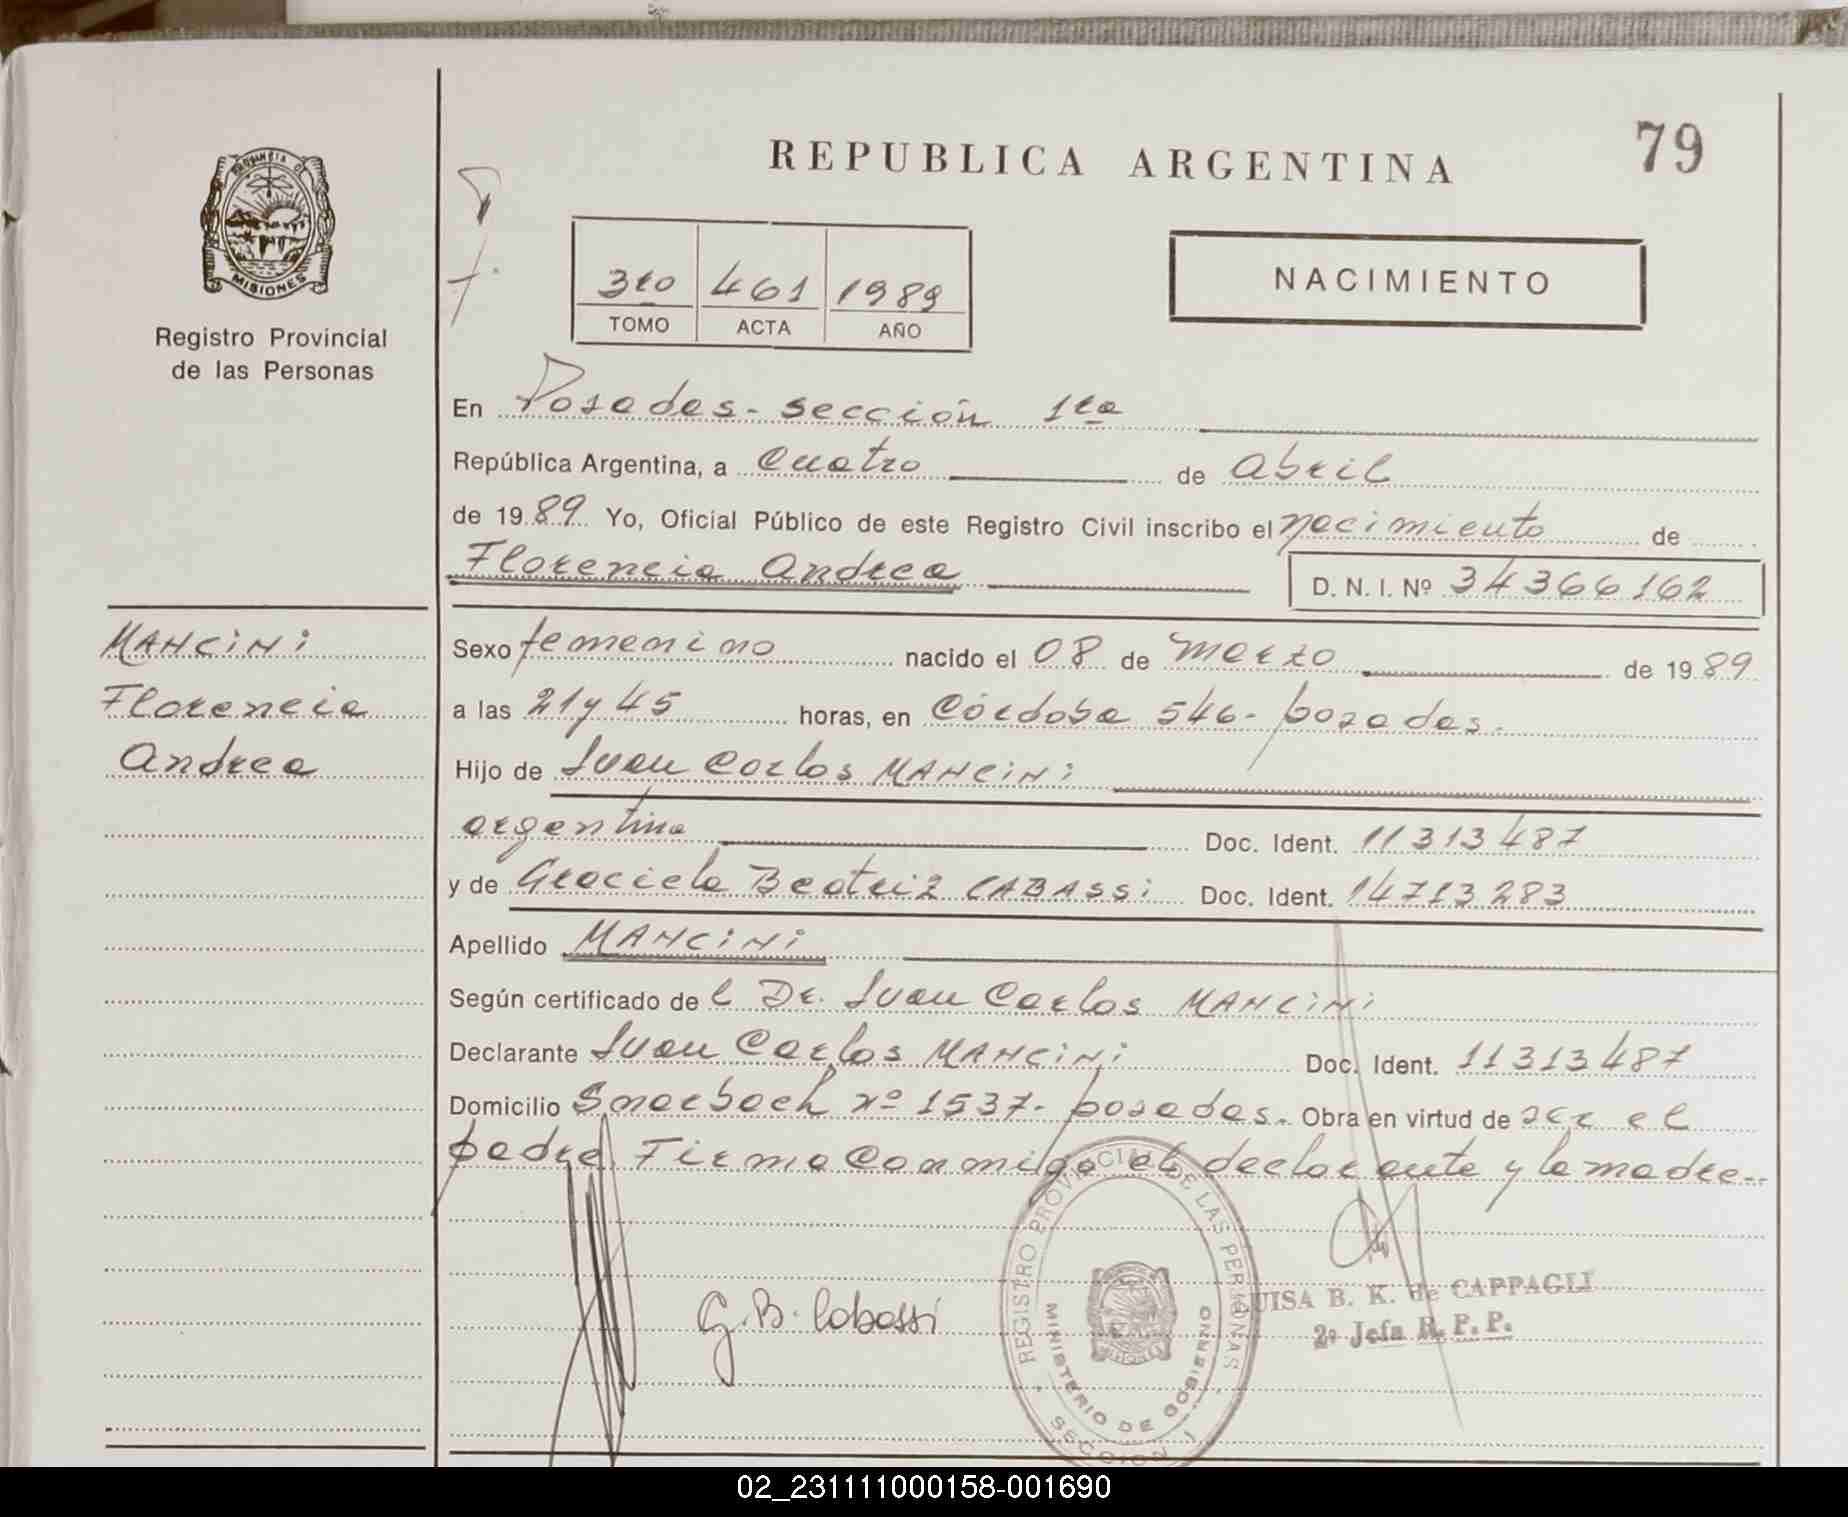 79
REPUBLICA ARGENTINA
PROVINCIA DE
MISIONES
Registro Provincial
de las Personas
3to 461 1989
TOMO ACTA AÑO
NACIMIENTO
En Posadas - sección 1ta
República Argentina, a Cuatro de abril
de 1989 Yo, Oficial Público de este Registro Civil inscribo el nacimiento de
Florencia Andrea D. N. I. Nº 34366162
MANCiNi
Florencia
Andrea
Sexo femenino nacido el 08 de marzo de 1989
a las 21 y 45 horas, en Córdoba 546 - posadas.
Hijo de Juan Carlos MANCiNi
argentino Doc. Ident. 11313487
y de Graciela Beatriz CABASSi Doc. Ident. 14713283
Apellido MANCiNi
Según certificado de l Dr. Juan Carlos MANCiNi
Declarante Juan Carlos MANCiNi Doc. Ident. 11313487
Domicilio nº 1537 - posadas. Obra en virtud de ser el
padre. Firma Conmigo el declarante y la madre.-
G. B. Cabassi
REGISTRO PROVINCIAL DE LAS PERSONAS
MINISTERIO DE GOBIERNO
SECCION 1
LUISA B. K. de CAPPAGLI
2º Jefa R. P. P.
02_231111000158-001690